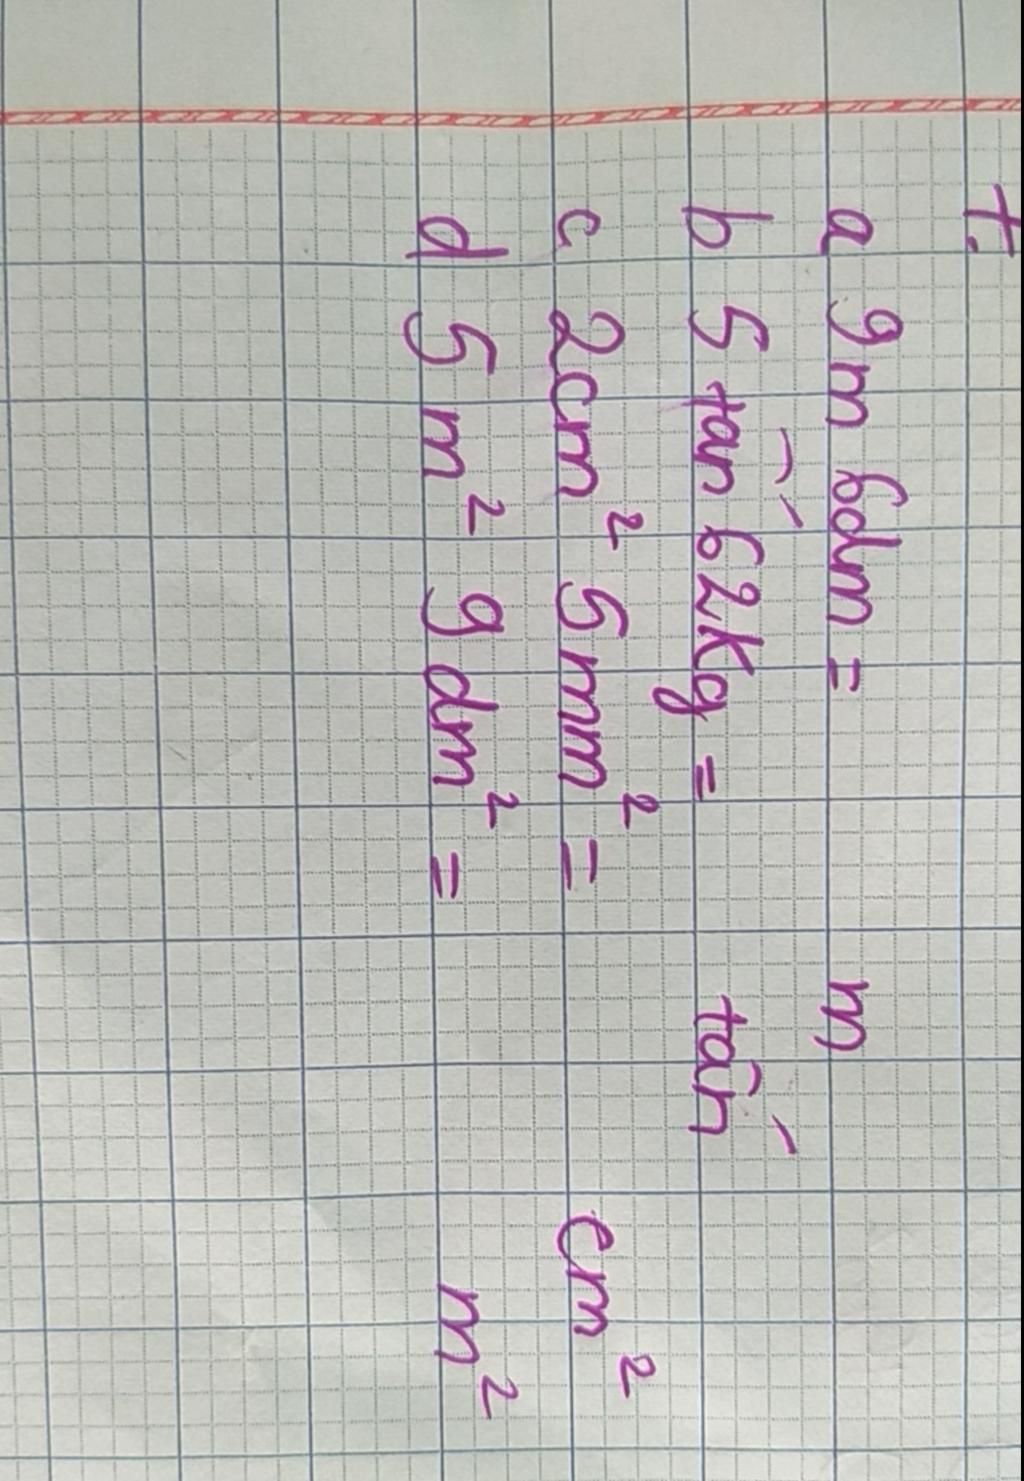 1.
a 9m 6dm = m
b 5 tấn 62kg = tấn
c 2cm² 5mm² = cm²
d 5 m² 9 dm² = m²